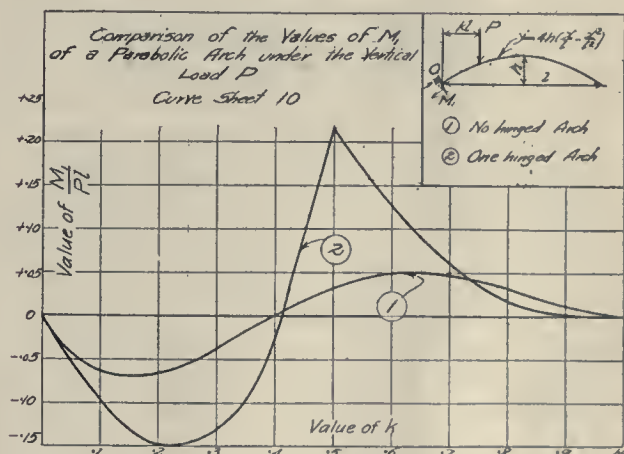 Comparison of the Values of M,
of a Parabolic Arch under the Vertical
Load P
Curve Sheet 10
kl
P
y=4h(x/l - x²/l²)
O
h
l
M,
① No hinged Arch
② One hinged Arch
+.25
+.20
+.15
+.10
+.05
0
-.05
-.10
-.15
Value of M₁/Pl
②
①
Value of k
.1 .2 .3 .4 .5 .6 .7 .8 .9 1.0